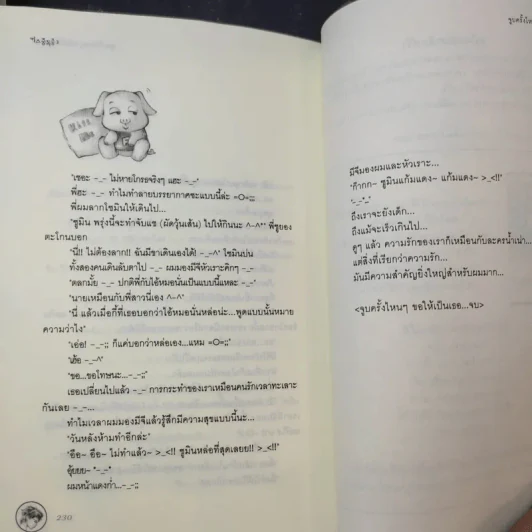 'เชอะ -_- ไม่หายโกรธจริงๆ แฮะ -_-'
พี่ฮะ -_- ทำไมทำลายบรรยากาศซะแบบนี้ล่ะ =O=;;
พี่ผมลากโซมินให้เดินไป...
'ซูมิน พรุ่งนี้จะทำจับแช (ผัดวุ้นเส้น) ไปให้กินนะ ^-^' พี่ซูยอง
ตะโกนบอก
'นี่!! ไม่ต้องลาก!! ฉันมีขาเดินเองได้! -_-^' โซมินบ่น
ทั้งสองคนเดินลับตาไป -_- ผมมองมีจีหัวเราะคิกๆ -_-
'ตลกมั้ย -_- ปกติพี่กับไอ้หมอนั่นก็เป็นแบบนี้แหละ -_-'
'นายเหมือนกับพี่สาวนี่เอง ^-^'
'นี่ แล้วเมื่อกี้ที่เธอบอกว่าไอ้หมอนั่นหล่อน่ะ...พูดแบบนั้นหมาย
ความว่าไง'
'เอ่อ! -_-;; ก็แค่บอกว่าหล่อเอง...แหม =O=;;'
'เฮ้อ -_-^'
'ขอ...ขอโทษนะ...-_-;'
เธอเปลี่ยนไปแล้ว -_- การกระทำของเราเหมือนคนรักเวลาทะเลาะ
กันเลย -_-...
ทำไมเวลาผมมองมีจีแล้วรู้สึกมีความสุขแบบนี้นะ...
'วันหลังห้ามทำอีกล่ะ'
'อือ- อือ- ไม่ทำแล้ว- >_<!! ซูมินหล่อที่สุดเลยยย!! >_<!'
อุ้ยยย- '-_-'
ผมหน้าแดงก่ำ...-_-;;
230
จูบครั้งไห
มีจีมองผมและหัวเราะ...
'ก๊ากก- ซูมินแก้มแดง- แก้มแดง- >_<!!'
'-_-'
ถึงเราจะยังเด็ก...
ถึงแม้จะเร็วเกินไป...
ดูๆ แล้ว ความรักของเราก็เหมือนกับละครน้ำเน่า...
แต่สิ่งที่เรียกว่าความรัก...
มันมีความสำคัญยิ่งใหญ่สำหรับผมมาก...
<จูบครั้งไหนๆ ขอให้เป็นเธอ...จบ>